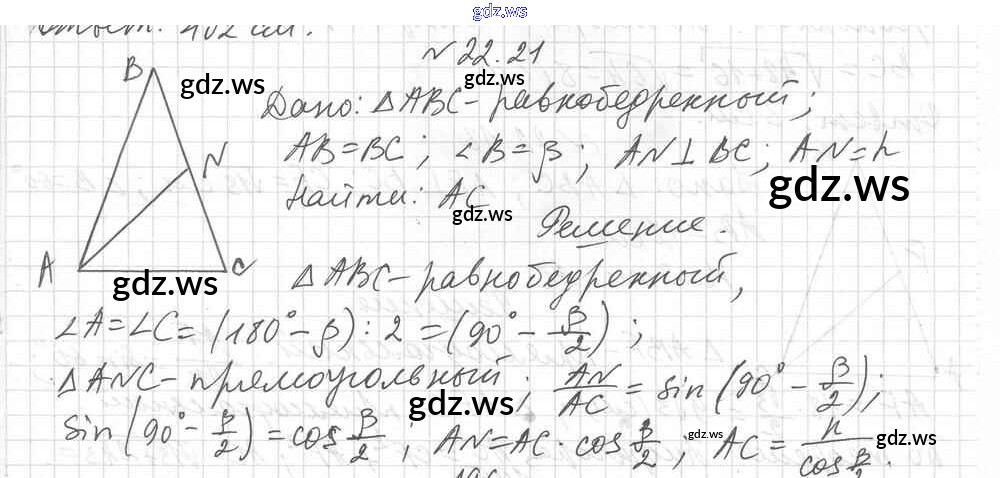 gdz.ws
Ответ: 402 см.
N 22.21
B
gdz.ws
Дано: △ABC - равнобедренный;
gdz.ws
N
AB = BC; ∠B = β; AN ⊥ BC; AN = h
gdz.ws
Найти: AC
gdz.ws
Решение.
A
C
gdz.ws
△ABC - равнобедренный,
∠A = ∠C = (180° - β) : 2 = (90° - β/2);
△ANC - прямоугольный; AN/AC = sin(90° - β/2);
gdz.ws
sin(90° - β/2) = cos β/2; AN = AC · cos β/2; AC = h/cos β/2.
gdz.ws
gdz.ws